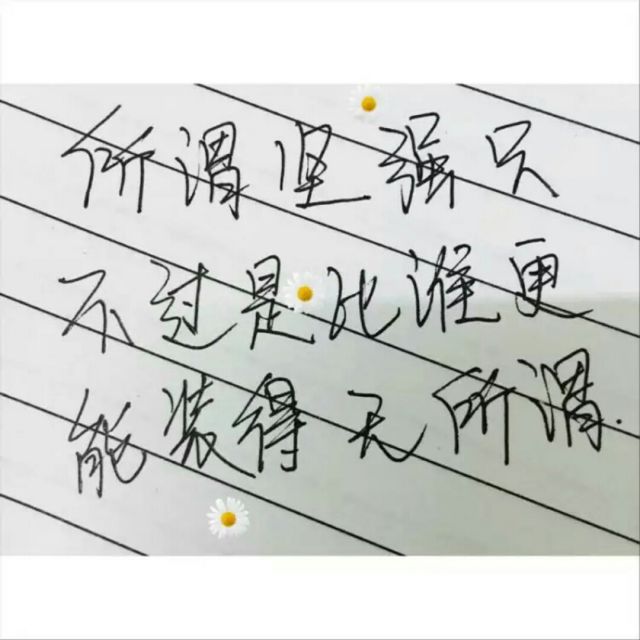 所谓坚强只
不过是比谁更
能装得无所谓.